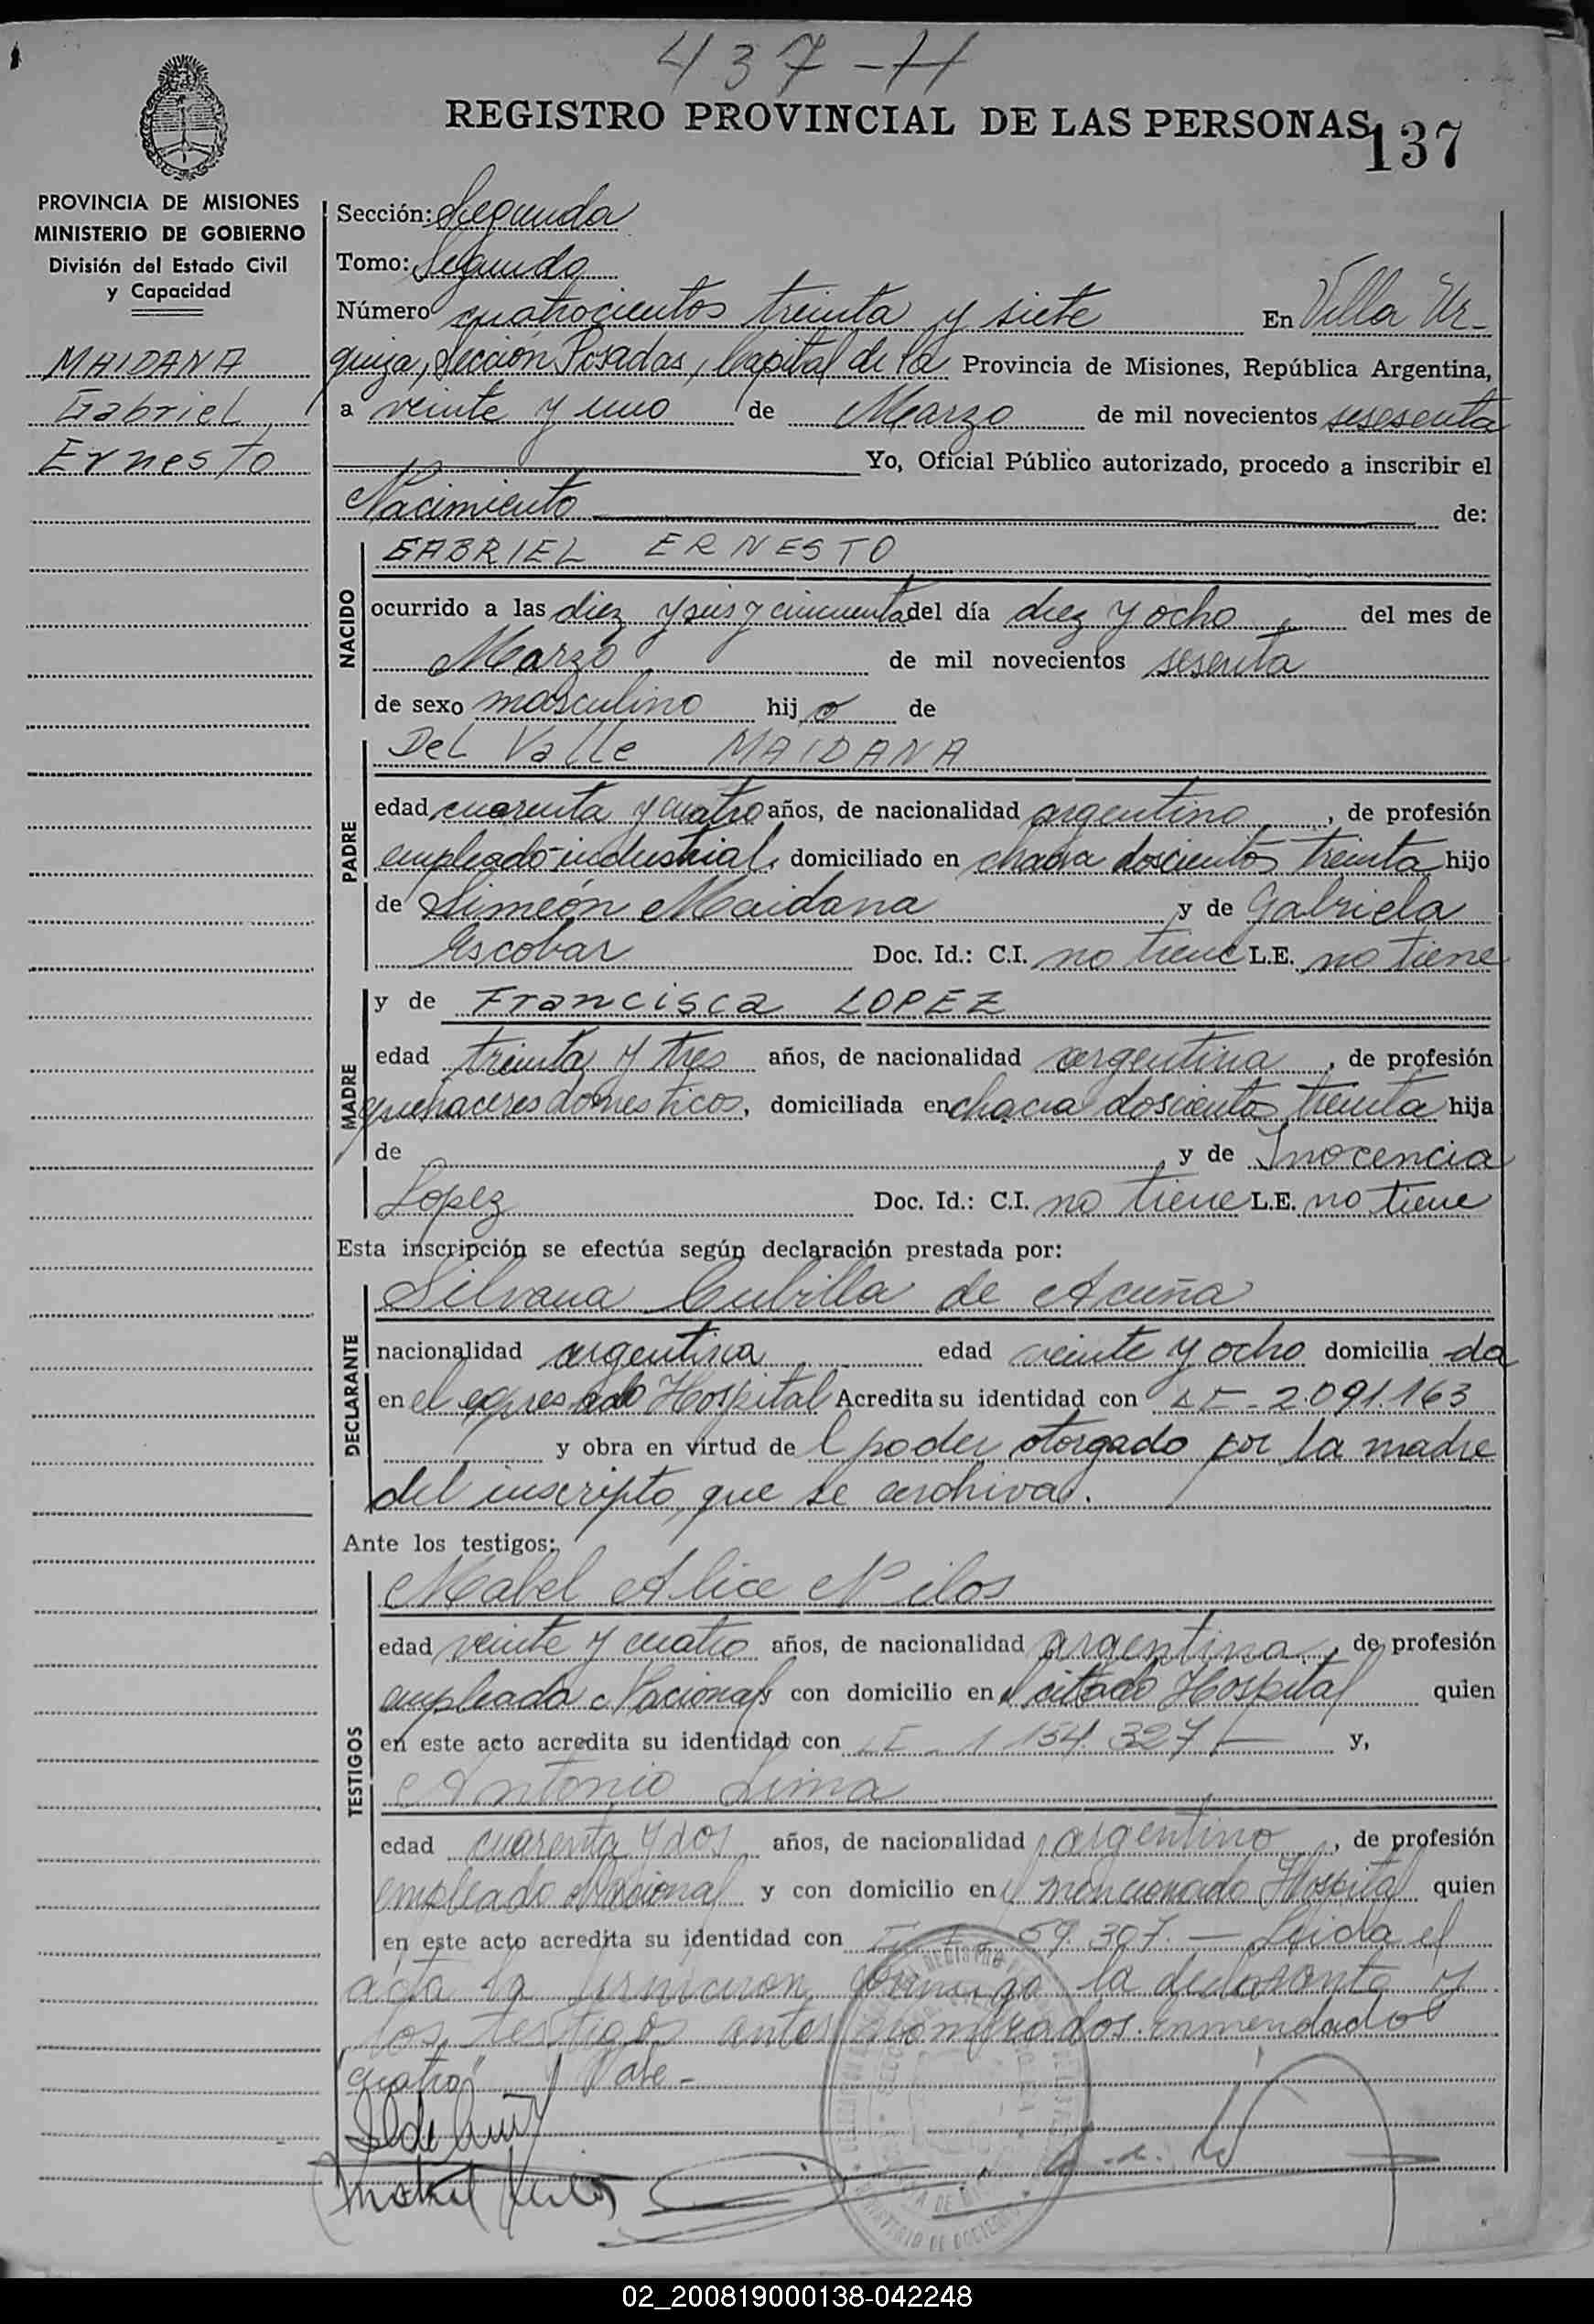 437-H
REGISTRO PROVINCIAL DE LAS PERSONAS
137
PROVINCIA DE MISIONES
MINISTERIO DE GOBIERNO
División del Estado Civil
y Capacidad
MAIDANA
Gabriel
Ernesto
Sección: Segunda
Tomo: Segundo
Número cuatrocientos treinta y siete En Villa Ur-
quiza, Sección Posadas, Capital de la Provincia de Misiones, República Argentina,
a veinte y uno de Marzo de mil novecientos sesesenta
Yo, Oficial Público autorizado, procedo a inscribir el
Nacimiento de:
NACIDO
GABRIEL ERNESTO
ocurrido a las diez y seis y cincuenta del día diez y ocho del mes de
Marzo de mil novecientos sesenta
de sexo masculino hijo de
PADRE
Del Valle MAIDANA
edad cuarenta y cuatro años, de nacionalidad argentino, de profesión
empleado industrial, domiciliado en chacra doscientos treinta hijo
de Simeón Maidana y de Gabriela
Escobar Doc. Id.: C.I. no tiene L.E. no tiene
MADRE
y de Francisca LOPEZ
edad treinta y tres años, de nacionalidad argentina, de profesión
quehaceres domesticos, domiciliada en chacra doscientos treinta hija
de y de Inocencia
Lopez Doc. Id.: C.I. no tiene L.E. no tiene
Esta inscripción se efectúa según declaración prestada por:
DECLARANTE
Silvana Cubilla de Acuña
nacionalidad argentina edad veinte y ocho domiciliada
en el expresado Hospital Acredita su identidad con 2.091.163
y obra en virtud del poder otorgado por la madre
del inscripto, que se archiva.
Ante los testigos:
TESTIGOS
Mabel Alice Nilos
edad veinte y cuatro años, de nacionalidad argentina, de profesión
empleada Nacional y con domicilio en el citado Hospital quien
en este acto acredita su identidad con 1.154.327 y,
Antonio Lima
edad cuarenta y dos años, de nacionalidad argentino, de profesión
empleado Nacional y con domicilio en el mencionado Hospital quien
en este acto acredita su identidad con 59.307.- Leida el
acta la firmaron conmigo la declarante y
los testigos antes nombrados. Enmendado
"cuatro" Vale -
02_200819000138-042248